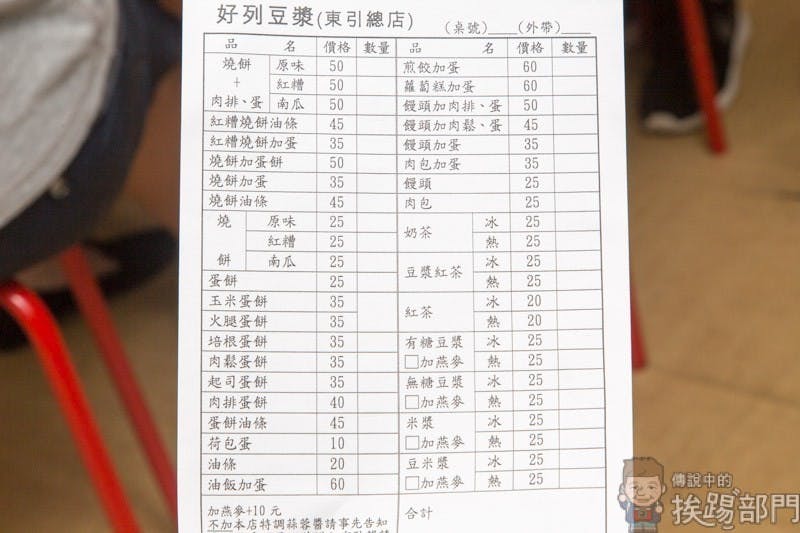 好列豆漿(東引總店)
(桌號)____(外帶)____
品名 價格 數量
燒餅+肉排、蛋 原味 50
紅糟 50
南瓜 50
紅糟燒餅油條 45
紅糟燒餅加蛋 35
燒餅加蛋餅 50
燒餅加蛋 35
燒餅油條 45
燒餅 原味 25
紅糟 25
南瓜 25
蛋餅 25
玉米蛋餅 35
火腿蛋餅 35
培根蛋餅 35
肉鬆蛋餅 35
起司蛋餅 35
肉排蛋餅 40
蛋餅油條 45
荷包蛋 10
油條 20
油飯加蛋 60
加燕麥+10元
不加本店特調蒜蓉醬請事先告知
品名 價格 數量
煎餃加蛋 60
蘿蔔糕加蛋 60
饅頭加肉排、蛋 50
饅頭加肉鬆、蛋 45
饅頭加蛋 35
肉包加蛋 35
饅頭 25
肉包 25
奶茶 冰 25
熱 25
豆漿紅茶 冰 25
熱 25
紅茶 冰 20
熱 20
有糖豆漿 冰 25
□加燕麥 熱 25
無糖豆漿 冰 25
□加燕麥 熱 25
米漿 冰 25
□加燕麥 熱 25
豆米漿 冰 25
□加燕麥 熱 25
合計
傳說中的
挨踢部門